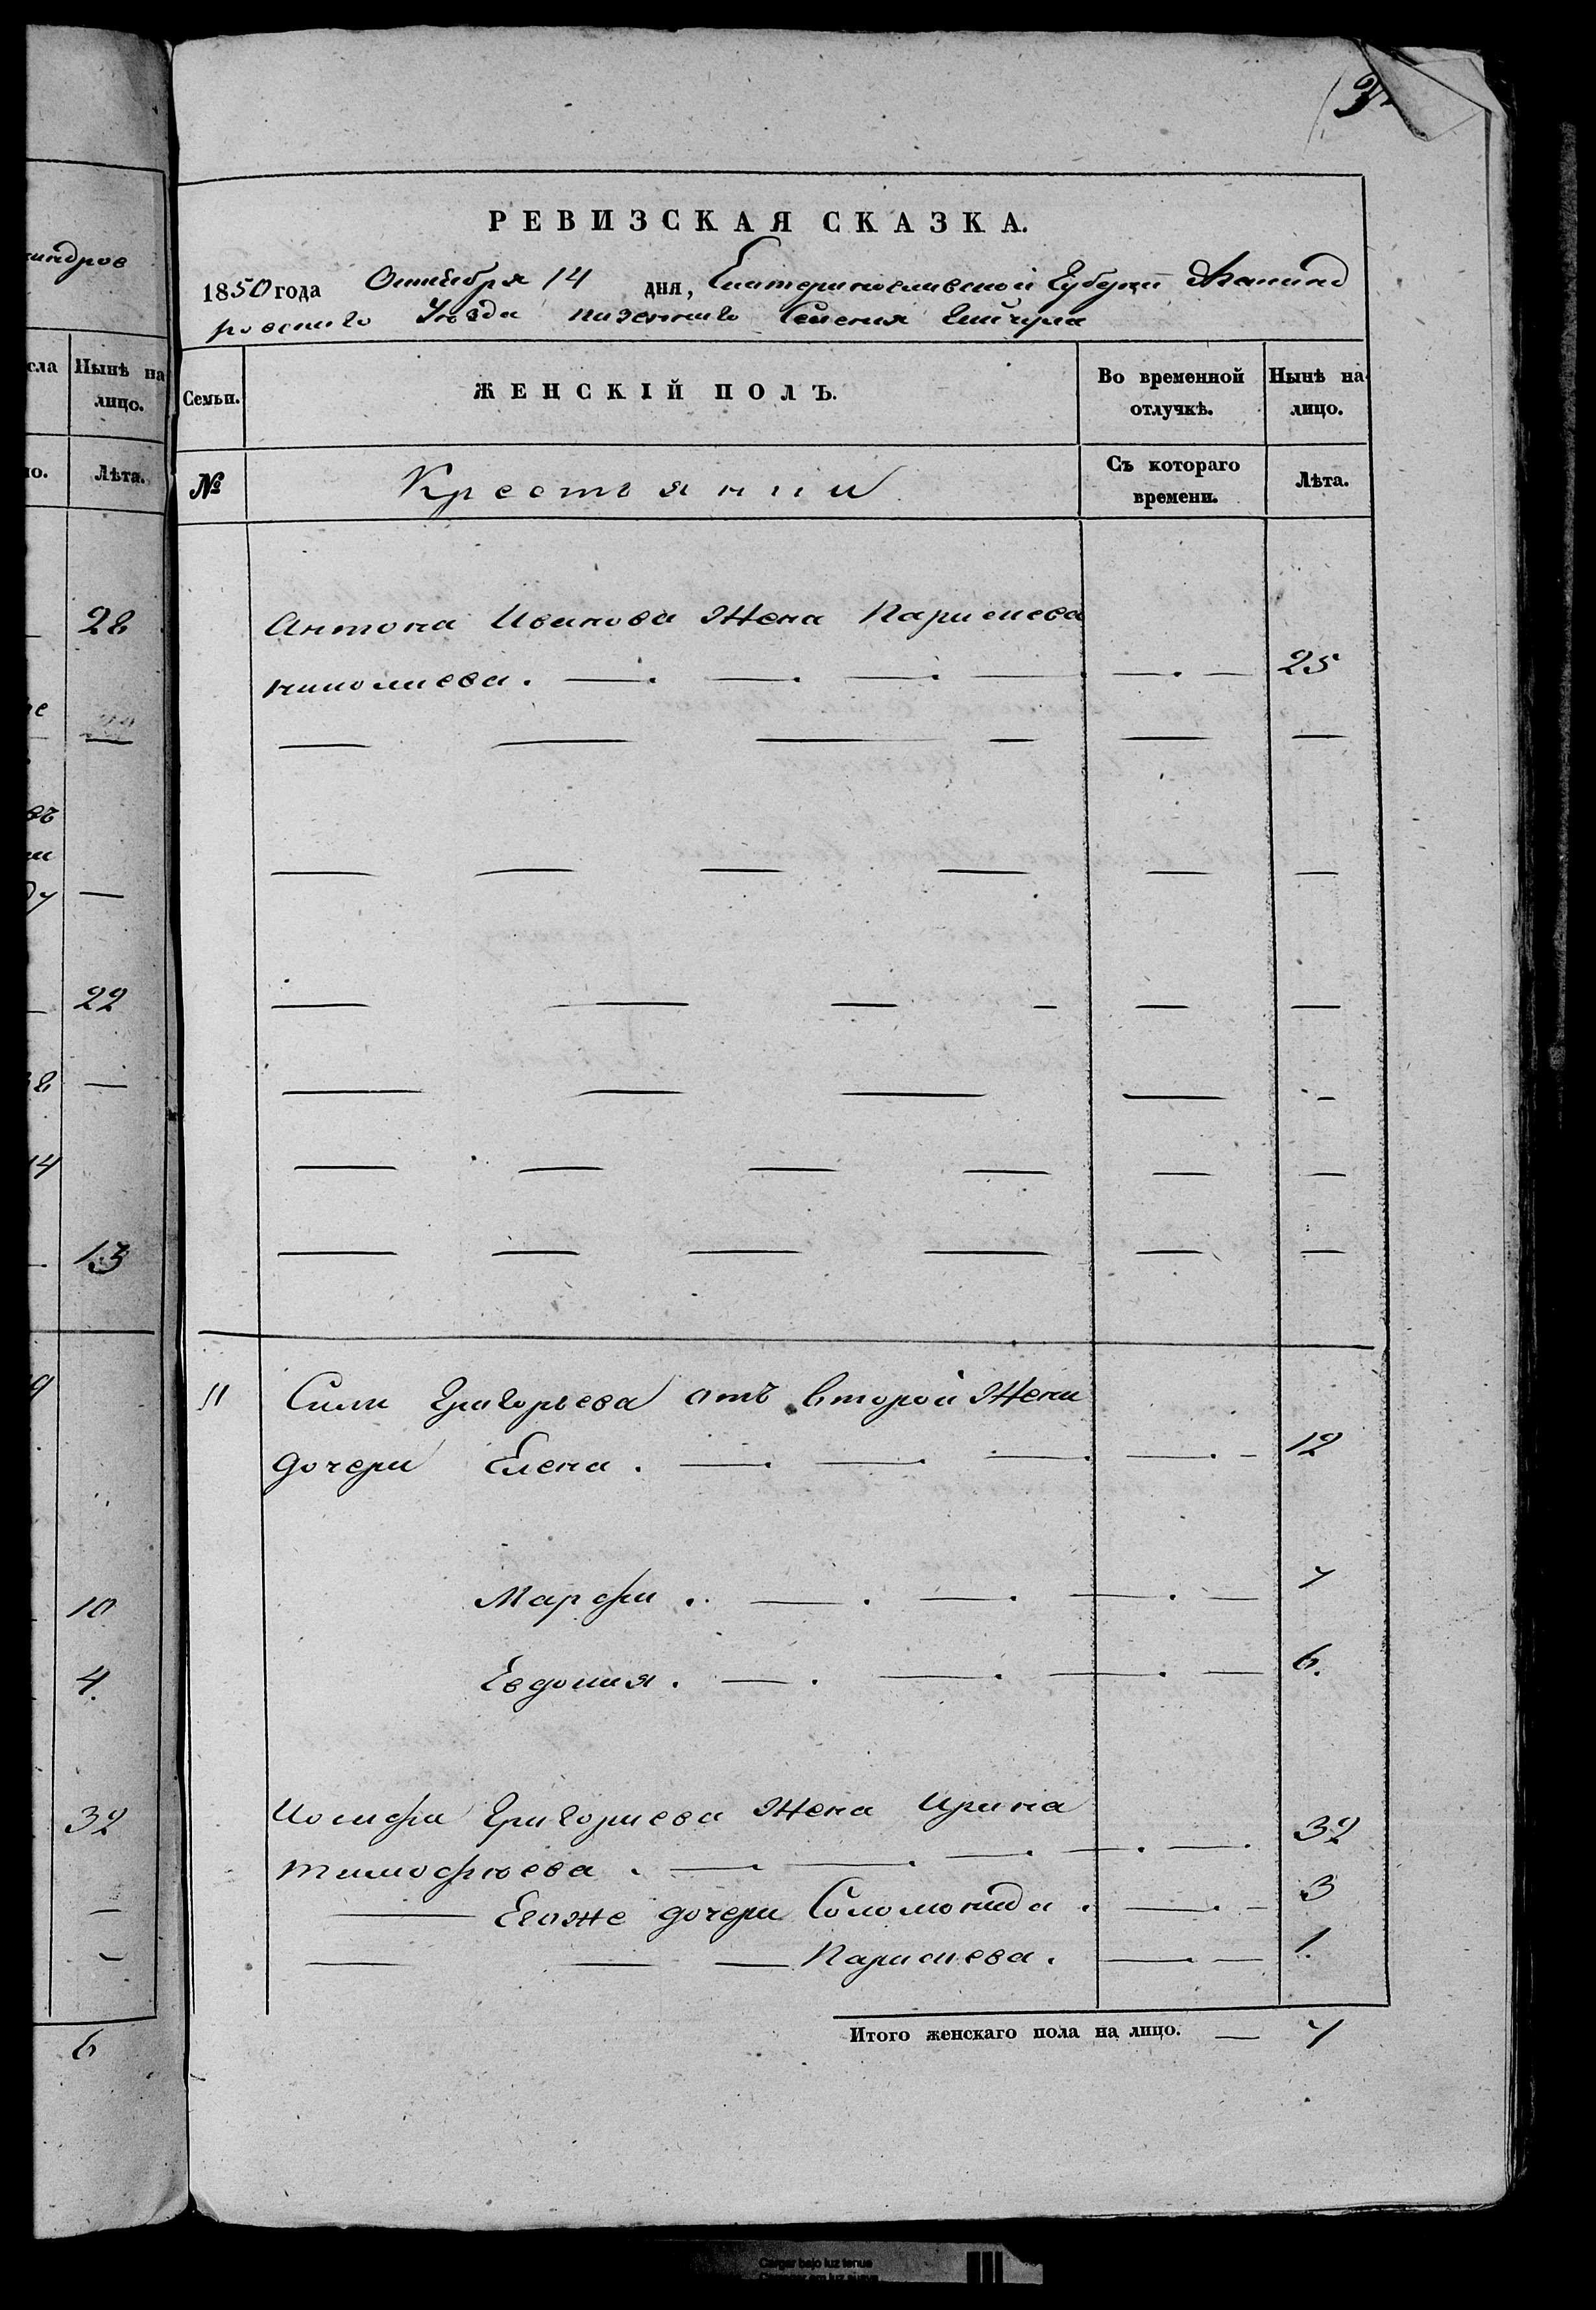 3
РЕВИЗСКАЯ СКАЗКА.
1850 года Октября 14 дня, Екатеринославской Губернии Александ
ровскаго Уезда казеннаго Селения
Семьи.
ЖЕНСКІЙ ПОЛЪ.
Во временной отлучкѣ.
Нынѣ на лицо.
№
Крестьянки
Съ котораго времени.
Лѣта.
Антона Иванова Жена Параскева
николаева. 25
11 Силы Григорьева отъ второй Жены
дочери Елена. 12
Марфа. 7
Евдокия. 6.
Иосифа Григориева Жена Ирина
тимофюева. 32
Егоже дочери Соломонида. 3
Параскева. 1.
Итого женскаго пола на лицо. — 7
индров
сла
Нынѣ на лицо.
ло.
Лѣта.
28
22
13
10
4.
32
6
Cargar bajo luz tenue